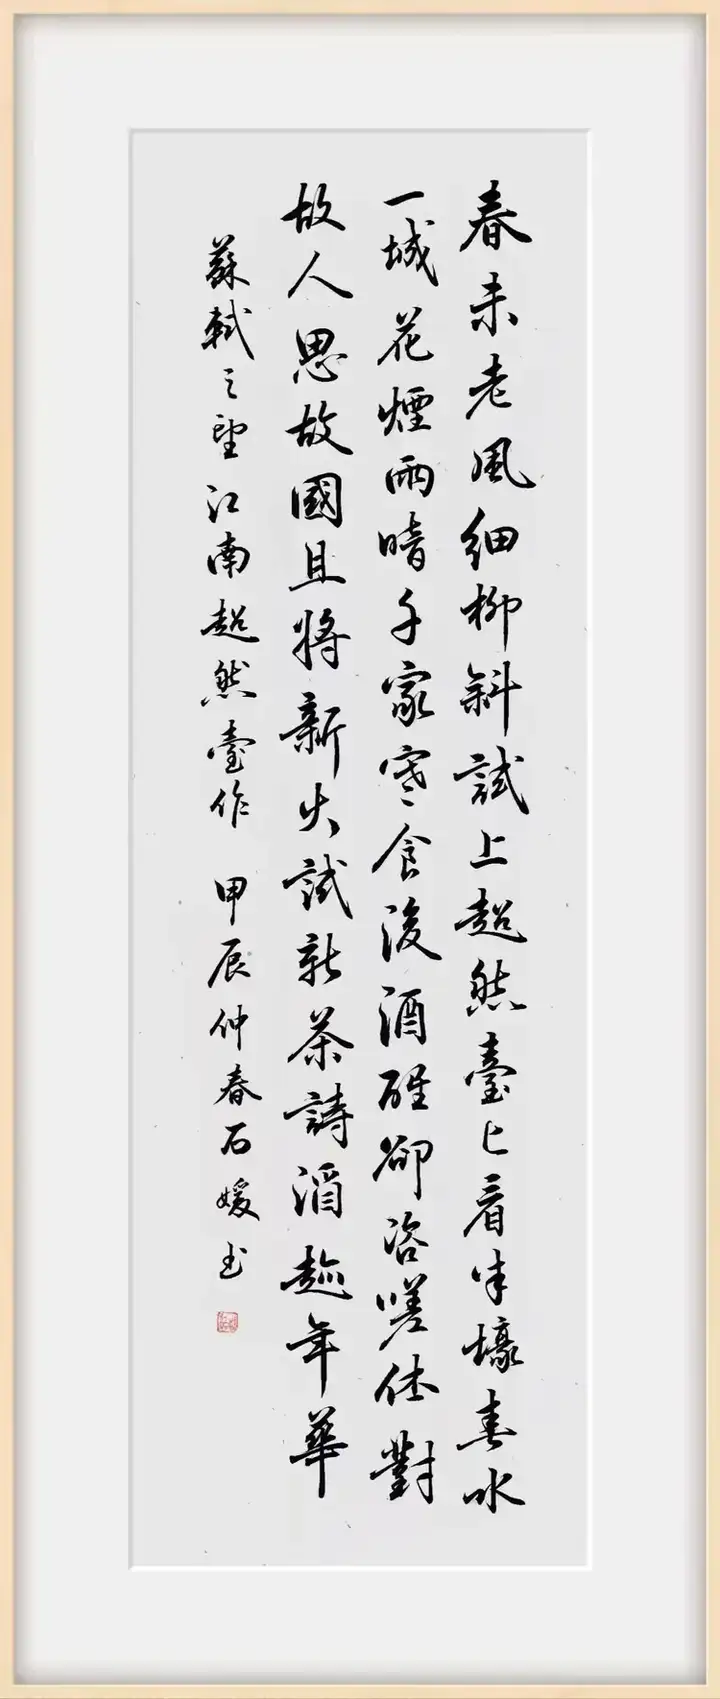 春未老風細柳斜試上超然臺上看半壕春水
一城花煙雨暗千家寒食後酒醒卻咨嗟休對
故人思故國且將新火試新茶詩酒趁年華
蘇軾之望江南超然臺作 甲辰仲春石媛书